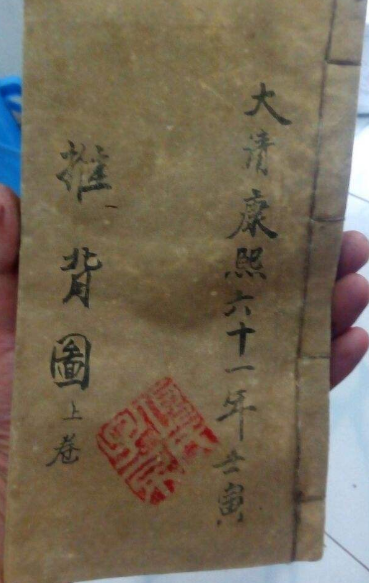 大清康熙六十一年壬寅
推背圖上卷